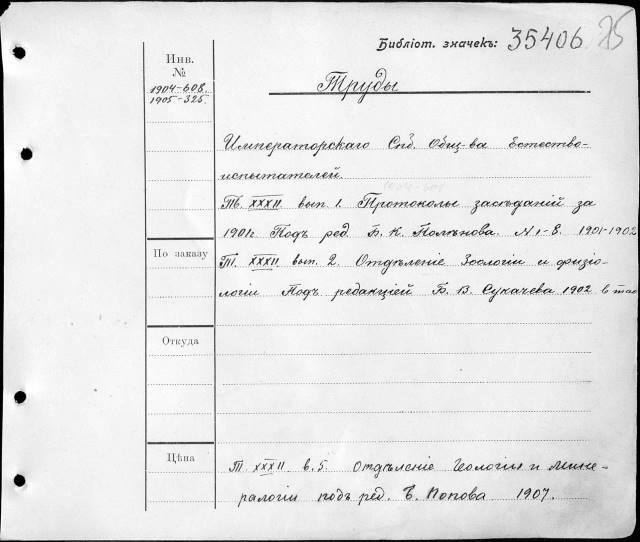 Библіот. значекъ: 35406 25
Инв.
№
1904-608.
1905-325.
Труды
Императорскаго Спб. Общ-ва Естество-
испытателей.
Т. XXXII вып. 1. Протоколы засѣданій за
1901г. Подъ ред. Б. К. Полѣнова. N 1-8. 1901-1902
По заказу
Т. XXXII. вып. 2. Отдѣленіе Зоологіи и физіо-
логіи Подъ редакціей Б. В. Сукачева 1902
Откуда
Цѣна
Т. XXXII в. 5. Отдѣленіе Геологіи и Мине-
ралогіи подъ ред. Б. Попова 1907.